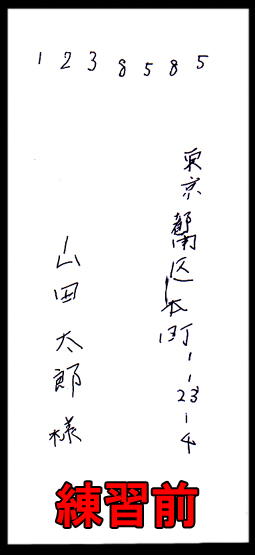 1238585
東京都南区本町1-23-4
山田太郎様
練習前